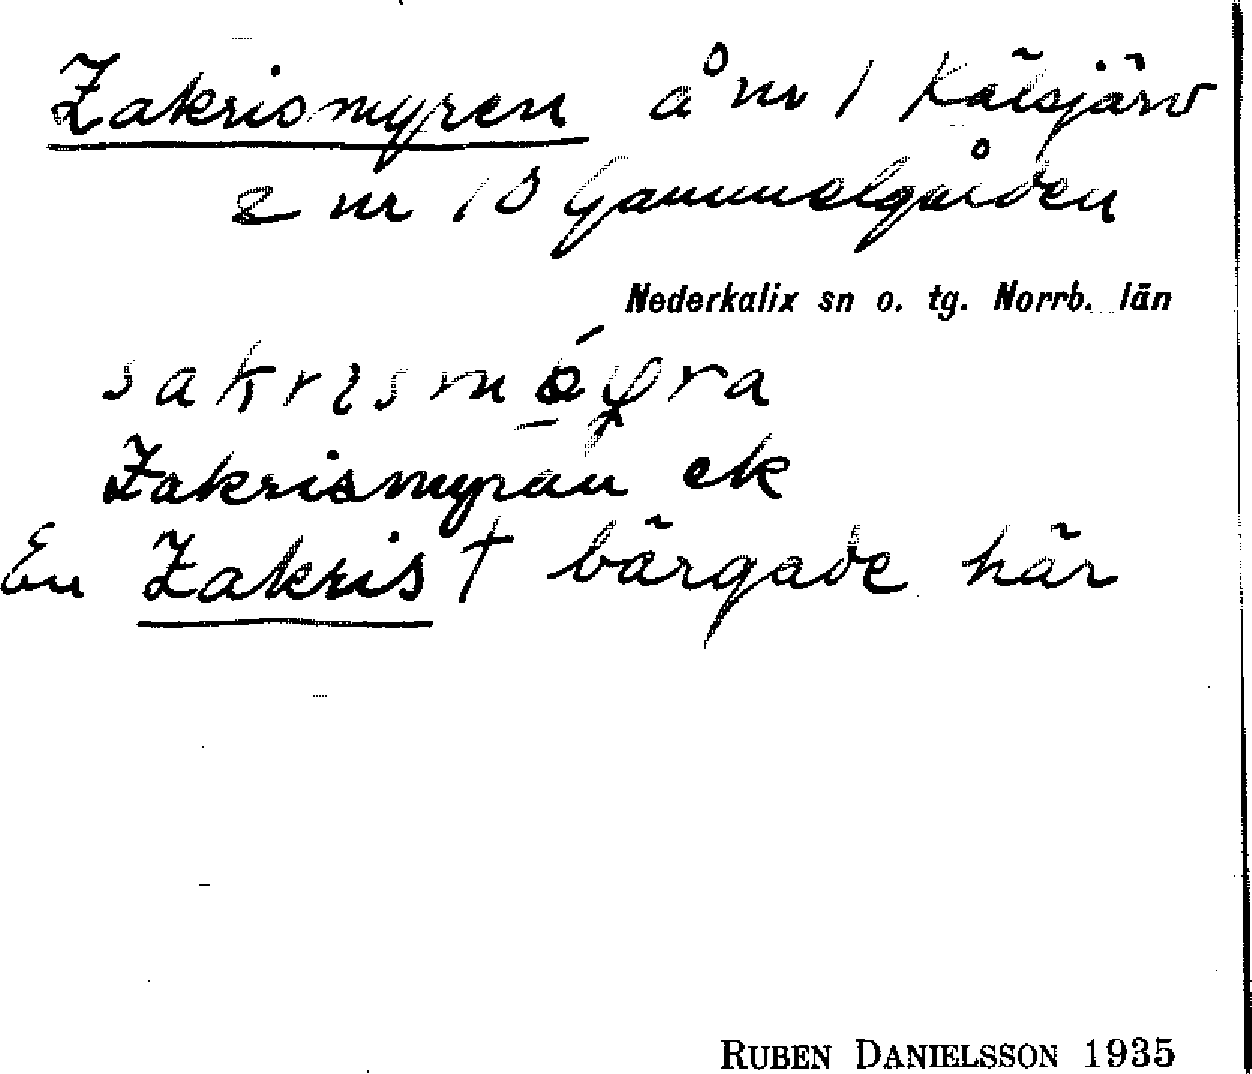 Zakrismyren å nr 1 Kälsjärv
2 nr 18 Gammelgården
Nederkalix sn o. tg. Norrb. län
Zakrismyran ek
En Zakris † bärgade här
RUBEN DANIELSSON 1935